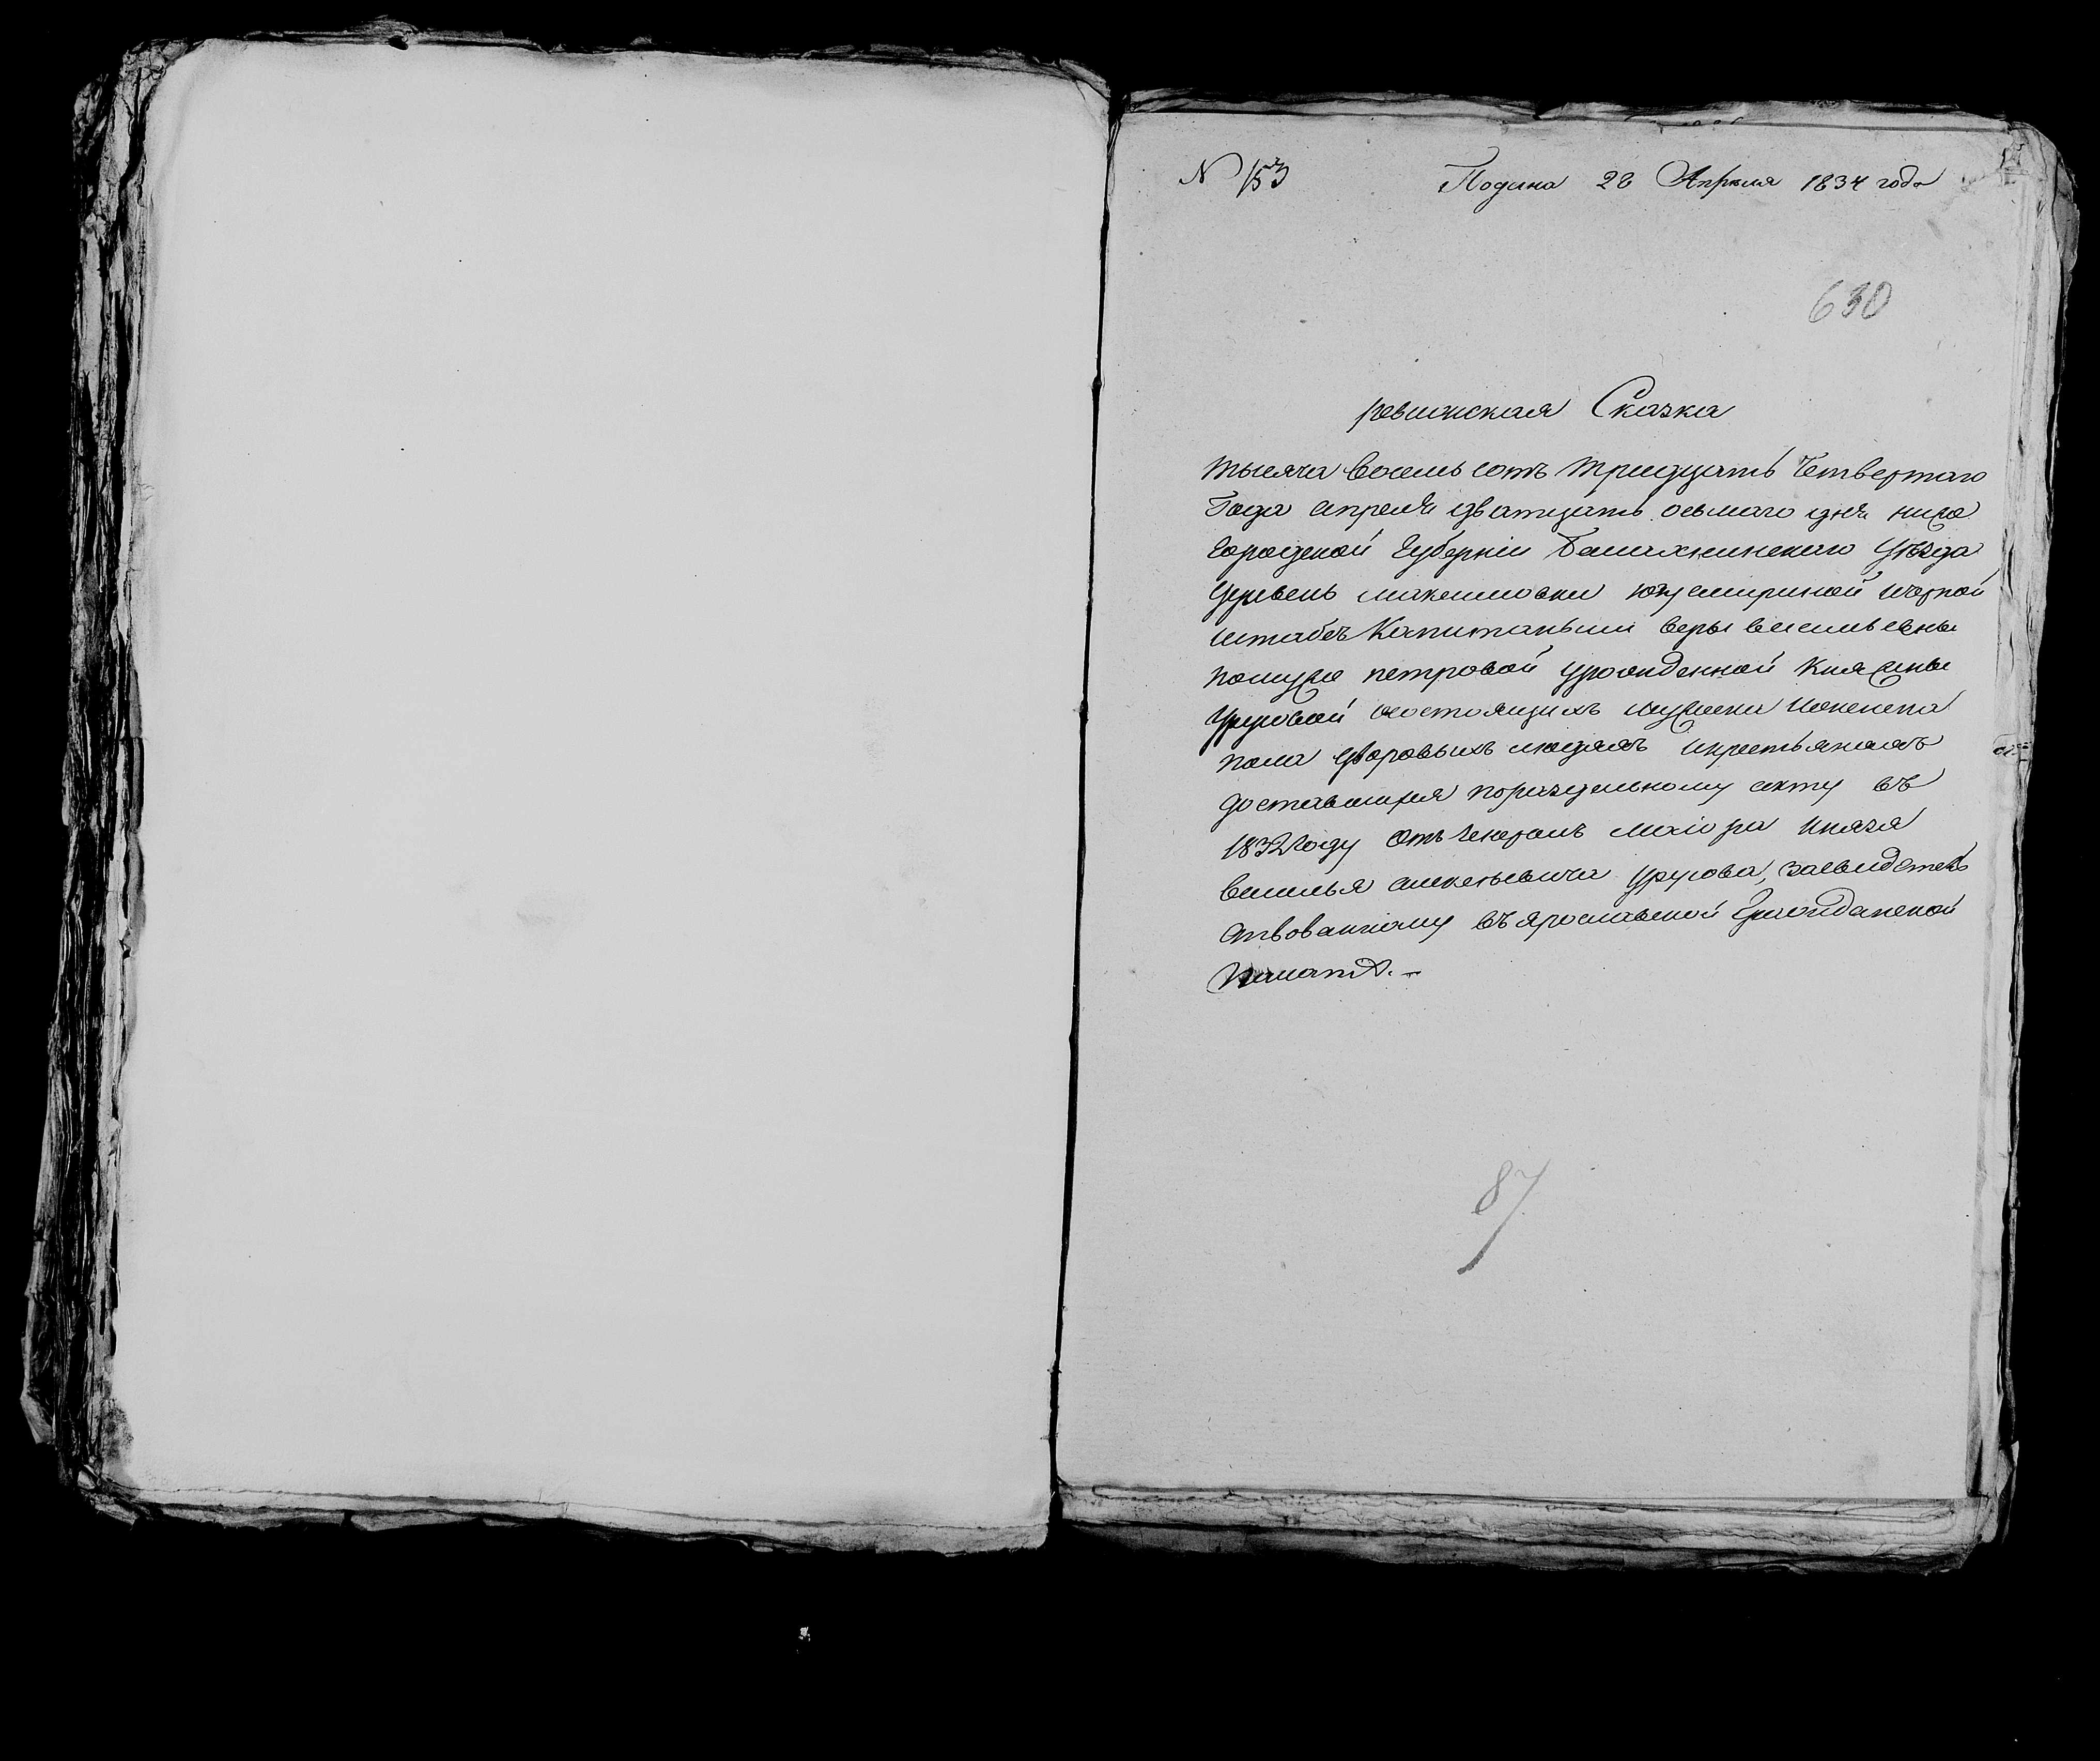 N 153 Подана 28 Апреля 1834 года
630
ревижская Сказка
тысяча восемь сотъ тридцать четвертаго
Года апреля дватцать осьмаго дня ниже
городской Губерніи Балахнинскаго уѣзда
деревень максимовки
штабсъ Капитанши веры васильевны
помуже петровой урожденной Княжны
Урусовой осостоящихъ мужеска иженска
пола дворовыхъ людяхъ икрестьянахъ
доставшихся пораздельному акту въ
1832 году отъ генералъ маіора князя
василья алексеевича урусова, засвидетель
ствованному въ ярославской Гражданской
палатѣ.
87